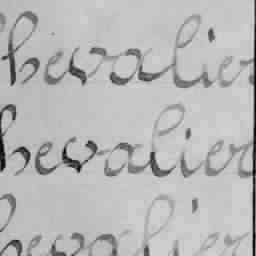 Chevalier
hevalier
hevalier